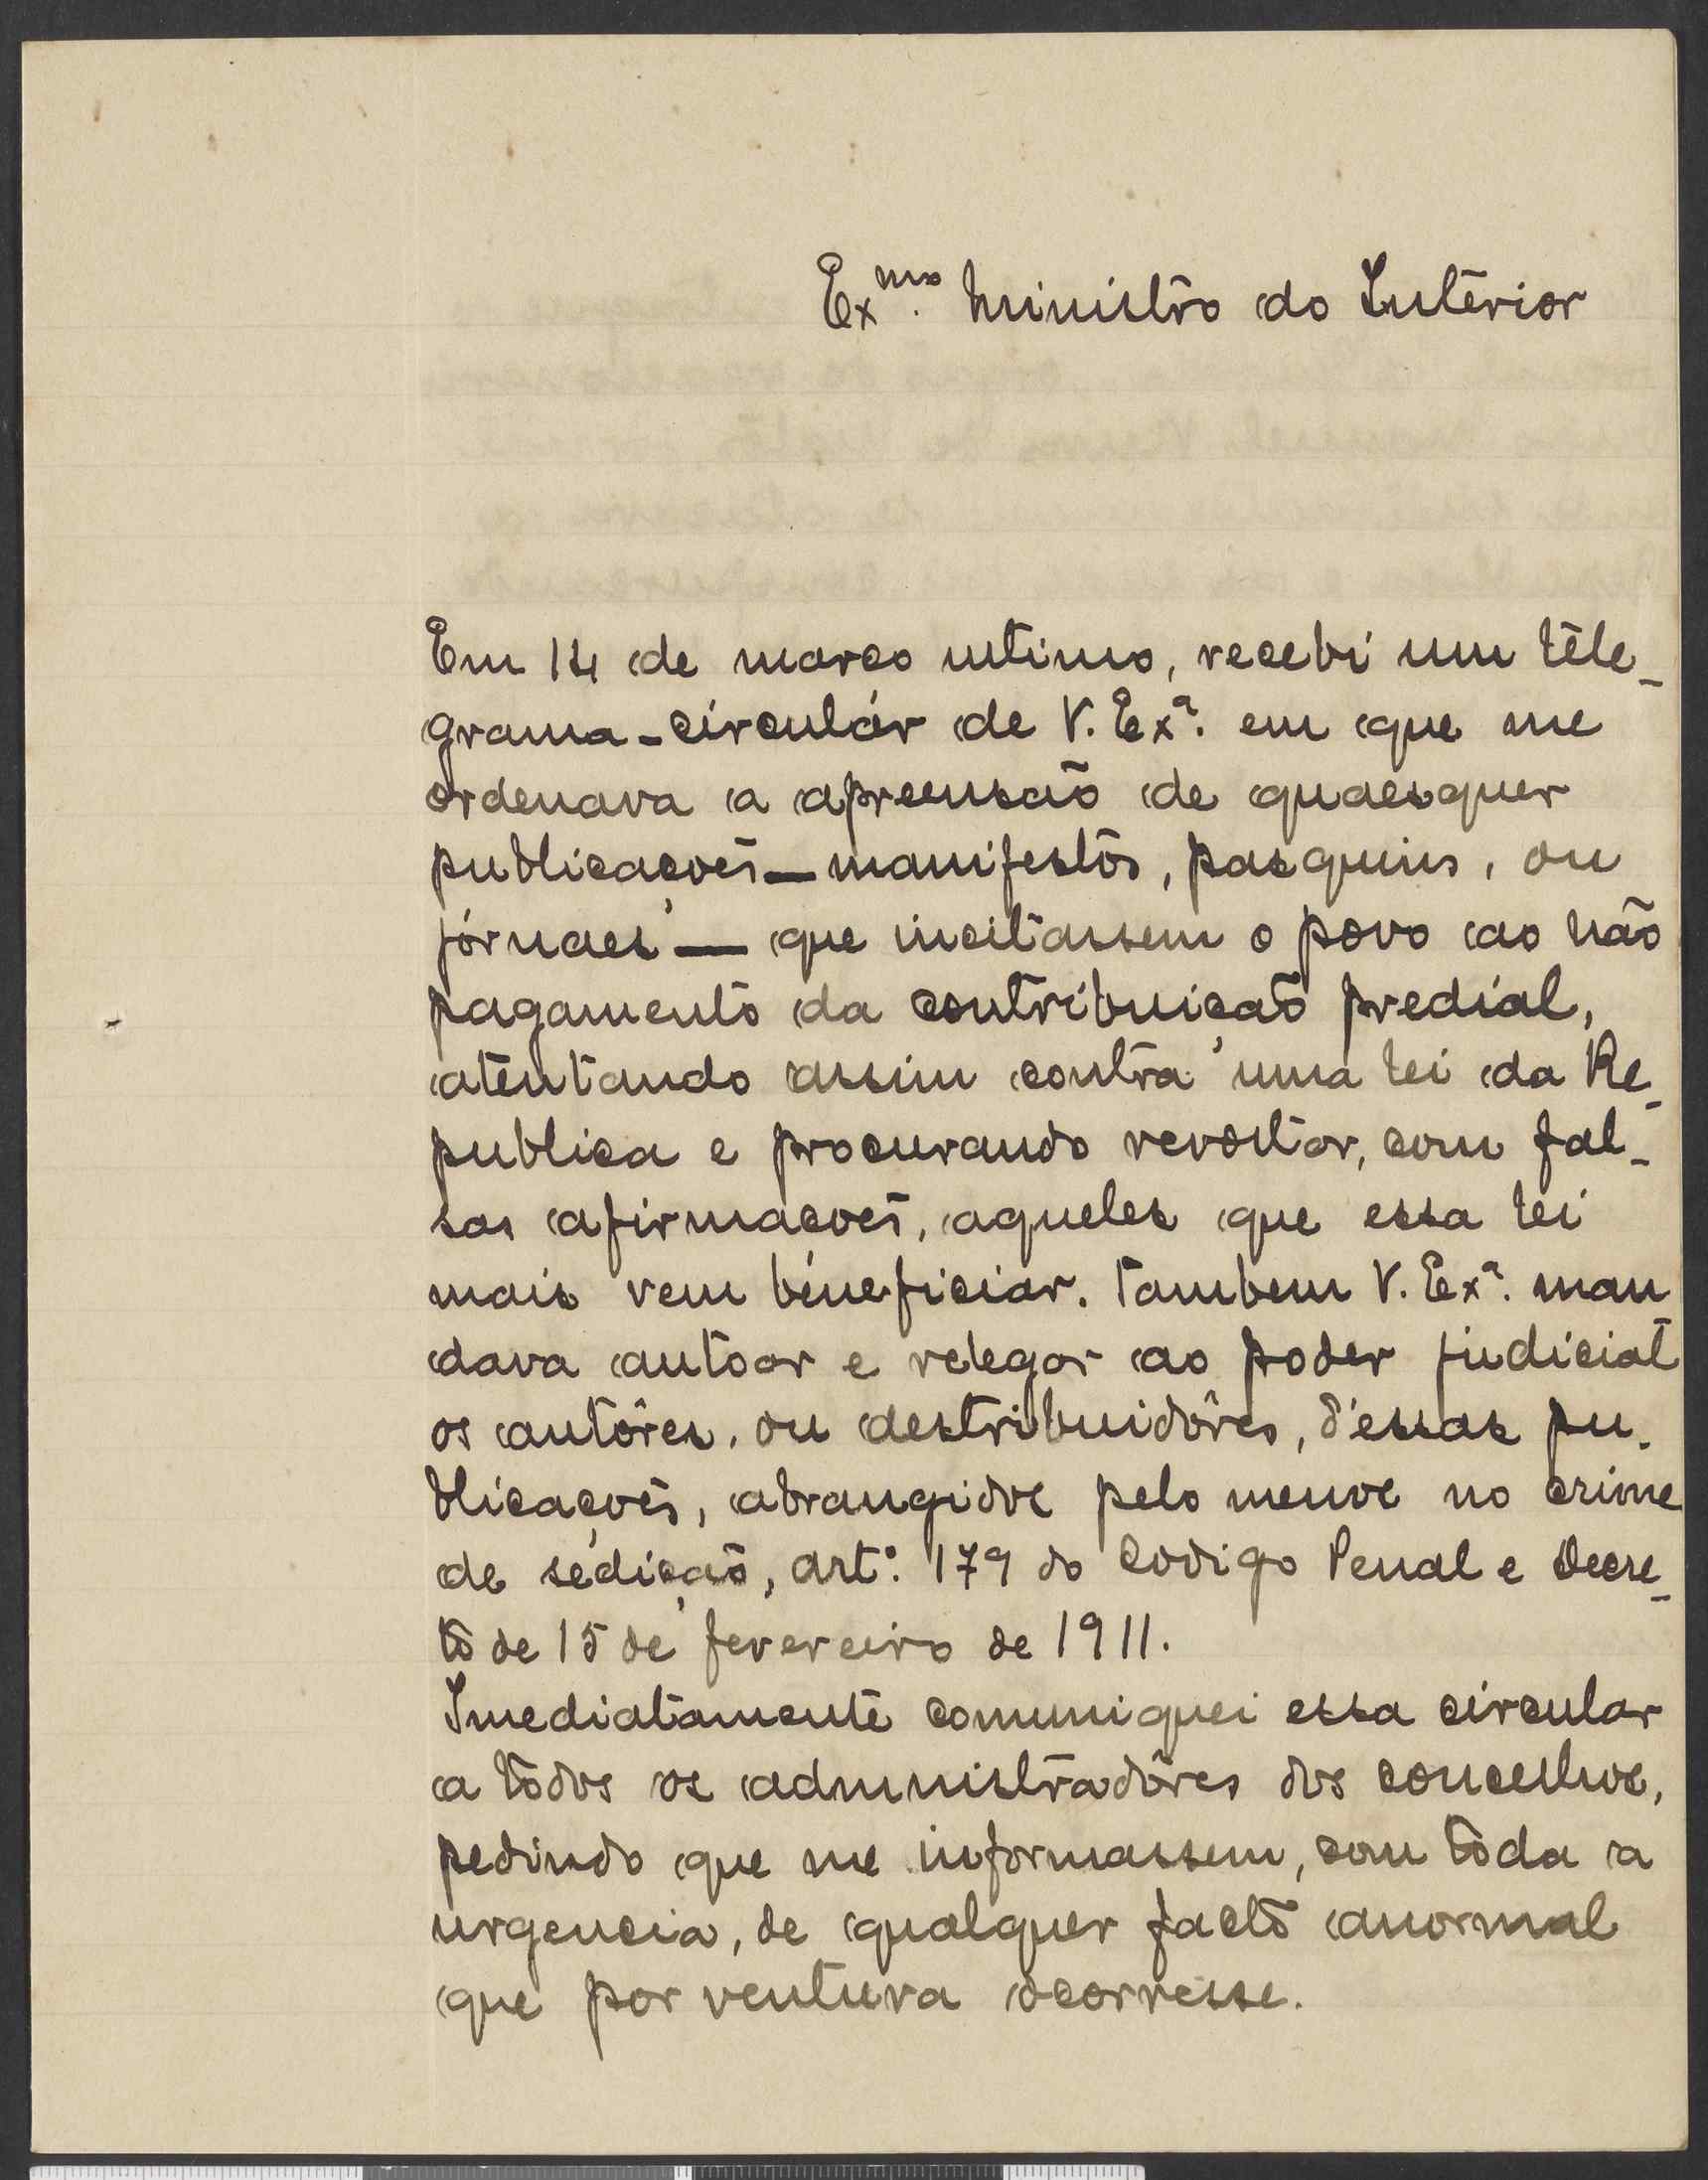 Exmo. Ministro do Interior
Em 14 de março ultimo, recebi um tele-
grama-circulár de V. Exª. em que me
ordenava a apreensão de quaesquer
publicações — manifestos, pasquins, ou
jórnaes — que incitassem o povo ao não
pagamento da contribuição predial,
atentando assim contra uma lei da Re-
publica e procurando revoltar, com fal-
sas afirmações, aqueles que essa lei
mais vem beneficiar. Tambem V. Exª. man
dava autoar e relegar ao poder judicial
os autôres, ou destribuidôres, d'essas pu-
blicações, abrangidos pelo menos no crime
de sedição, artº. 179 do Codigo Penal e Decre-
to de 15 de fevereiro de 1911.
Imediatamente comuniquei essa circular
a todos os administradôres dos concelhos,
pedindo que me informassem, com toda a
urgencia, de qualquer facto anormal
que por ventura ocorresse.